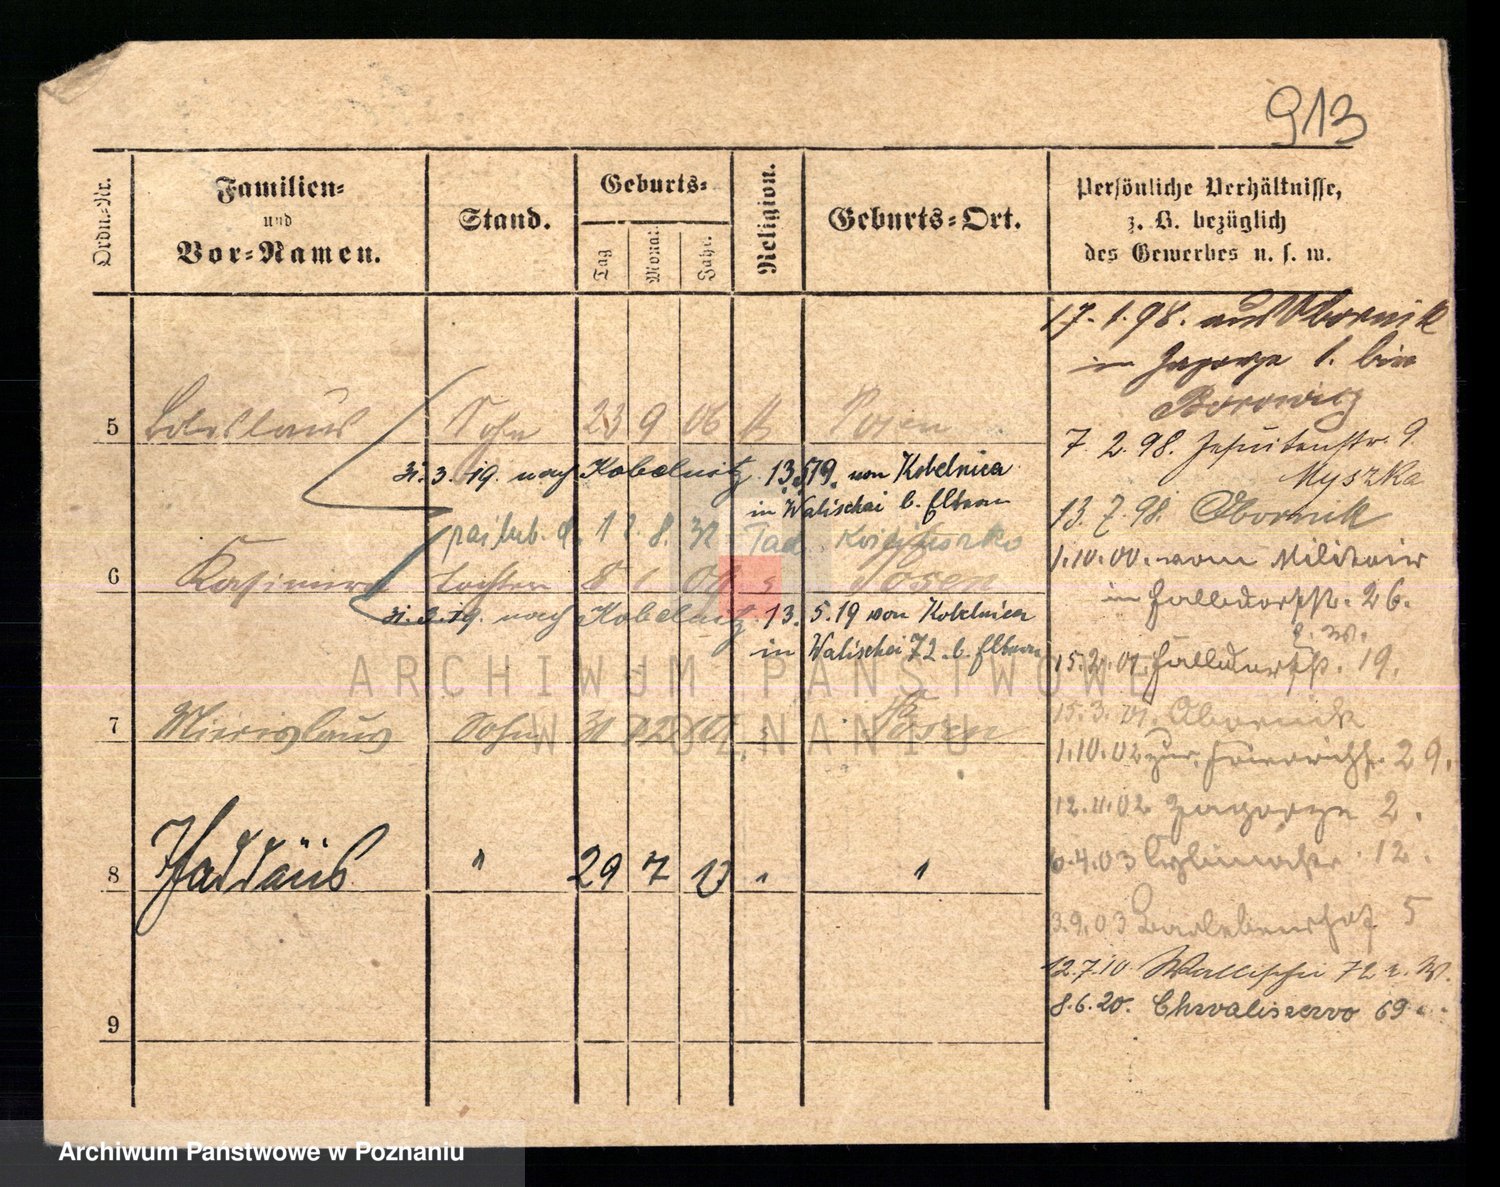 913
Ordn.-Nr.
Familien-
und
Vor-Namen.
Stand.
Geburts-
Tag
Monat
Jahr.
Religion.
Geburts-Ort.
Persönliche Verhältnisse,
z. B. bezüglich
des Gewerbes u. s. w.
5 Boleslaus Sohn 23 9 06 k Posen
31.3.19. nach Kobelnitz 13.5.19. von Kobelnica
in Walischei b. Eltern
8. 32 Tad. Kościuszko
6 Kasimira Tochter 8 1 09 Posen
31.3.19. nach Kobelnitz 13.5.19 von Kobelnica
in Walischei 72 b. Eltern
7 Mieczyslaus Sohn 31 12 Posen
8 Thaddäus " 29 7 13 " "
9
17.1.98. aus Obornik
in Zagorze 1. bei
Borowicz
7.2.98. Jesuitenstr. 9
Myszka
13.7.98. Obornik
1.10.00. vom Militair
in Halldorfstr. 26.
15.2.01. Halldorfstr. 19.
15.3.01. Obornik
1.10.02 29.
12.11.02 Zagorze 2.
6.4.03 12.
3.9.03 Bartelenshof 5
12.7.10 Wallischei 72 r. W.
8.6.20. Chwaliszewo 69
ARCHIWUM PAŃSTWOWE
W POZNANIU
Archiwum Państwowe w Poznaniu